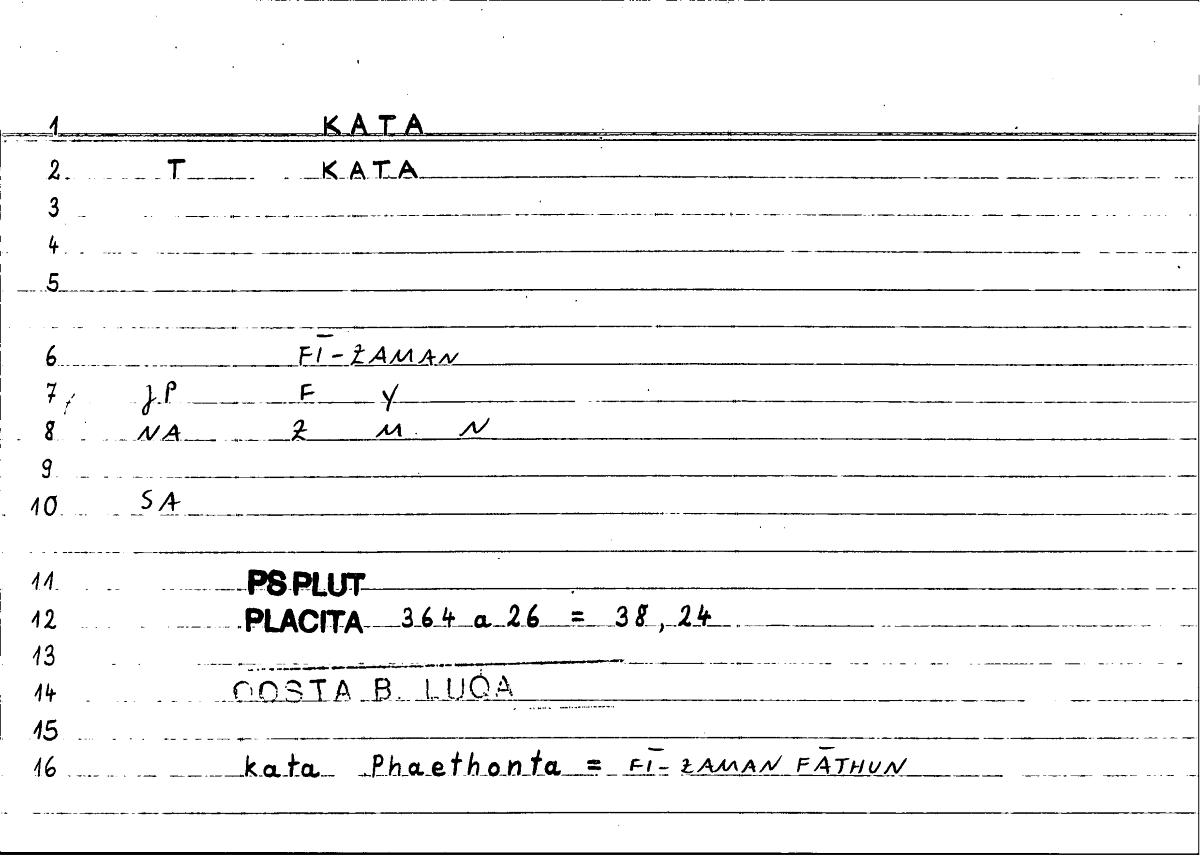 1 KATA
2 T KATA
3
4
5
6 FĪ-ZAMAN
7 JP F Y
8 NA Z M N
9
10 SA
11 PS PLUT
12 PLACITA 364 a 26 = 38,24
13
14 QOSTA B. LUQA
15
16 kata Phaethonta = FĪ-ZAMAN FĀTHUN